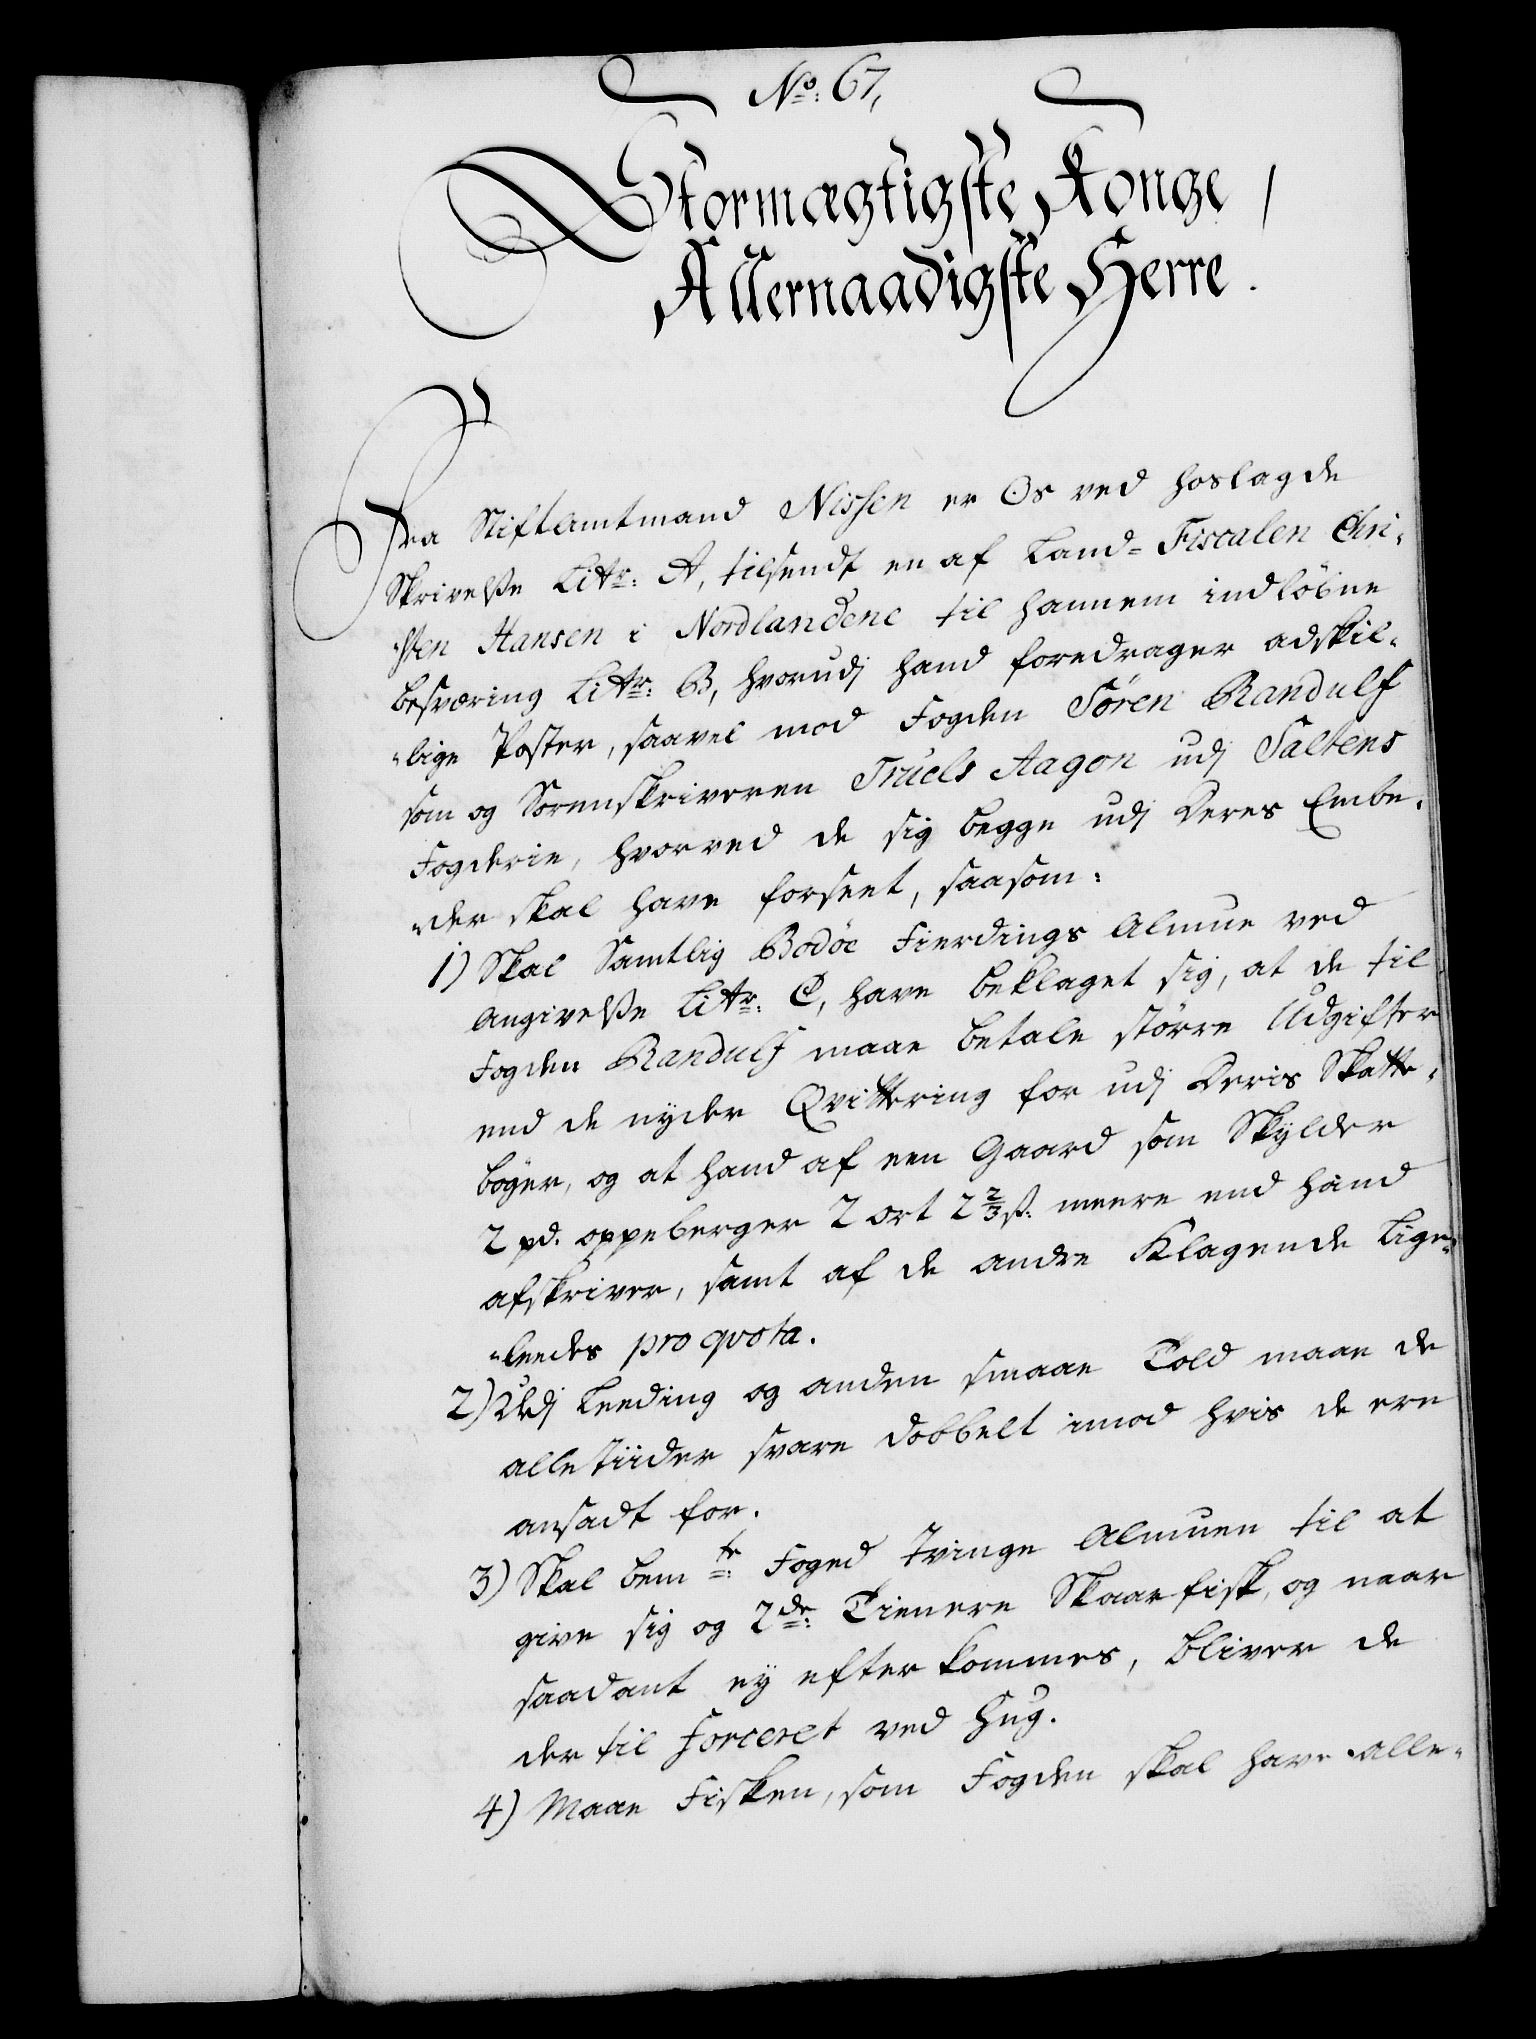 No: 67,
Stormægtigste Konge /
Allernaadigste Herre.
Fra Stiftamtmand Nissen er Os ved hoslagde
Skrivelße Litr: A, tilsendt en af Land-Fiscalen Chri-
-sten Hansen i Nordlandene til hannem indløbne
besværing Litr: B, hvorudj hand foredrager adskil-
-lige Poster, saavel mod Fogden Sören Randulf
som og Sorenskriveren Truels Aagon udj Saltens
Fogderie, hvorved de sig begge udj deres Embe-
-der skal have forseet, saasom:
1) Skal Samtlig Bodöe Fierdings Almue ved
Angivelße Litr: C, have beklaget sig, at de til
Fogden Randulf maae betale större Udgifter
end de nyder Qvittering for udj deris Skatte-
böger, og at hand af een Gaard som Skylder
2 pd. oppeberger 2 ort 2 2/3 ß: meere end hand
afskriver, samt af de andre Klagende lige-
-leedes pro qvota.
2) Udj Leeding og anden smaae Told maae de
alletiider svare dobbelt imod hvis de ere
ansadt for.
3) Skal bemte: Foged tvinge Almuen til at
give sig og 2de: Tienere Skaarfisk, og naar
saadant ey efterkommes, bliver de
der til forceret ved Hug.
4) Maae Fisken, som Fogden skal have alle-